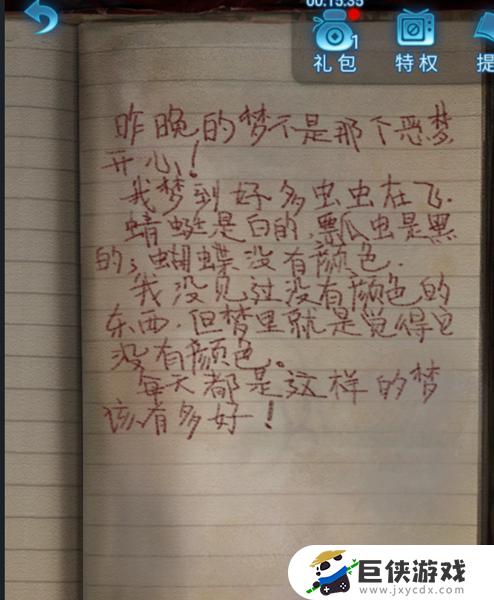 00:15:35
1
礼包
特权
提
昨晚的梦不是那个恶梦
开心!
我梦到好多虫虫在飞.
蜻蜓是白的,瓢虫是黑
的;蝴蝶没有颜色.
我没见过没有颜色的
东西.但梦里就是觉得它
没有颜色。
每天都是这样的梦
该有多好!
巨侠游戏
www.jxycdx.com